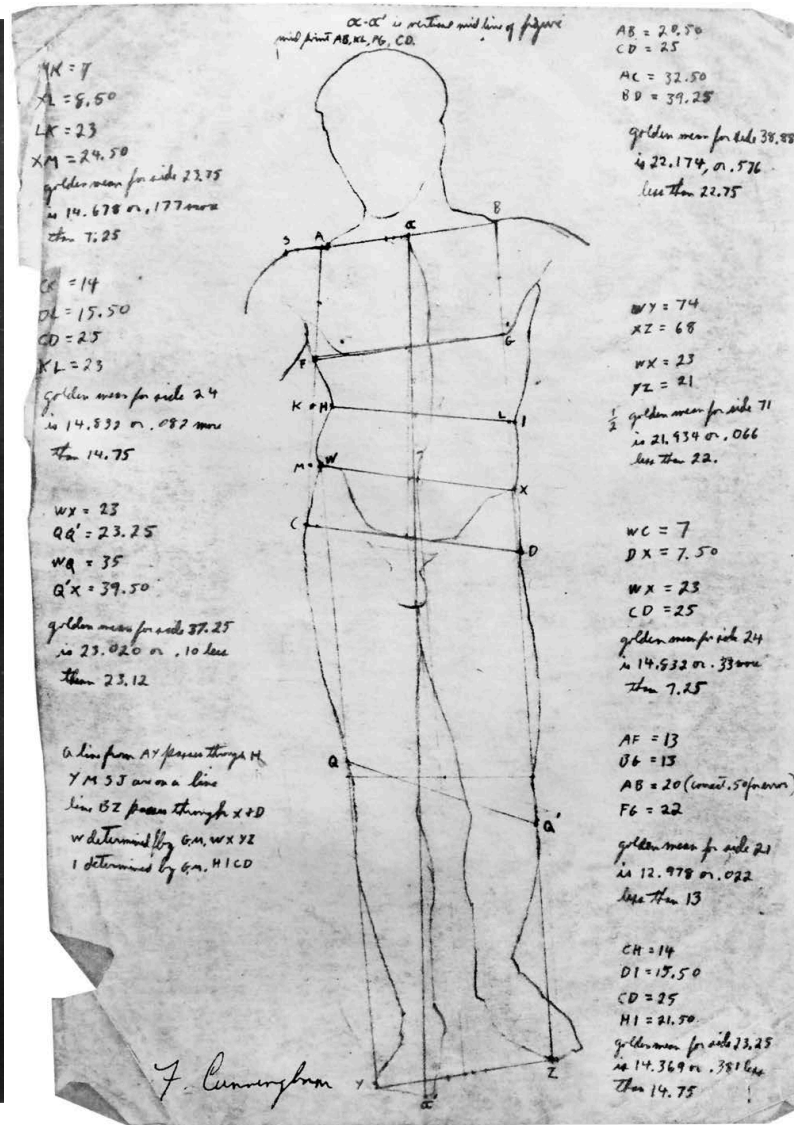 α-α' is vertical mid line of figure
mid point AB, KL, FG, CD.
MK = 7
XL = 8.50
LK = 23
XM = 24.50
golden mean for side 23.75
is 14.678 or .177 more
than 7.25
CK = 14
DL = 15.50
CD = 25
KL = 23
golden mean for side 24
is 14.832 or .082 more
than 14.75
WX = 23
QQ' = 23.25
WQ = 35
Q'X = 39.50
golden mean for side 37.25
is 23.020 or .10 less
than 23.12
a line from AY passes through H
Y M S J are on a line
line BZ passes through X+D
W determined by G.M. WXYZ
I determined by G.M. HICD
AB = 20.50
CD = 25
AC = 32.50
BD = 39.25
golden mean for side 38.88
is 22.174, or .576
less than 22.75
WY = 74
XZ = 68
WX = 23
YZ = 21
1/2 golden mean for side 71
is 21.934 or .066
less than 22.
WC = 7
DX = 7.50
WX = 23
CD = 25
golden mean for side 24
is 14.832 or .33 more
than 7.25
AF = 13
BG = 13
AB = 20 (correct .50 for error)
FG = 22
golden mean for side 21
is 12.978 or .022
less than 13
CH = 14
DI = 15.50
CD = 25
HI = 21.50
golden mean for side 23.25
is 14.369 or .381 less
than 14.75
S A α B
F G
K H L I
M W X
C D
Q
Q'
Y Z
α'
F. Cunningham